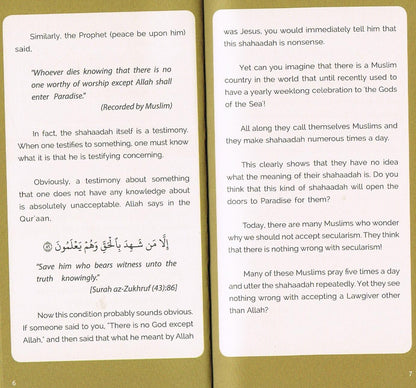 Similarly, the Prophet (peace be upon him)
said,
"Whoever dies knowing that there is no
one worthy of worship except Allah shall
enter Paradise."
(Recorded by Muslim)
In fact, the shahaadah itself is a testimony.
When one testifies to something, one must know
what it is that he is testifying concerning.
Obviously, a testimony about something
that one does not have any knowledge about
is absolutely unacceptable. Allah says in the
Qur'aan,
إِلَّا مَن شَهِدَ بِالْحَقِّ وَهُمْ يَعْلَمُونَ ﴿٨٦﴾
"Save him who bears witness unto the
truth knowingly."
[Surah az-Zukhruf (43);86]
Now this condition probably sounds obvious.
If someone said to you, "There is no God except
Allah," and then said that what he meant by Allah
6
was Jesus, you would immediately tell him that
this shahaadah is nonsense.
Yet can you imagine that there is a Muslim
country in the world that until recently used to
have a yearly weeklong celebration to 'the Gods
of the Sea'!
All along they call themselves Muslims and
they make shahaadah numerous times a day.
This clearly shows that they have no idea
what the meaning of their shahaadah is. Do you
think that this kind of shahaadah will open the
doors to Paradise for them?
Today, there are many Muslims who wonder
why we should not accept secularism. They think
that there is nothing wrong with secularism!
Many of these Muslims pray five times a day
and utter the shahaadah repeatedly. Yet they see
nothing wrong with accepting a Lawgiver other
than Allah?
7